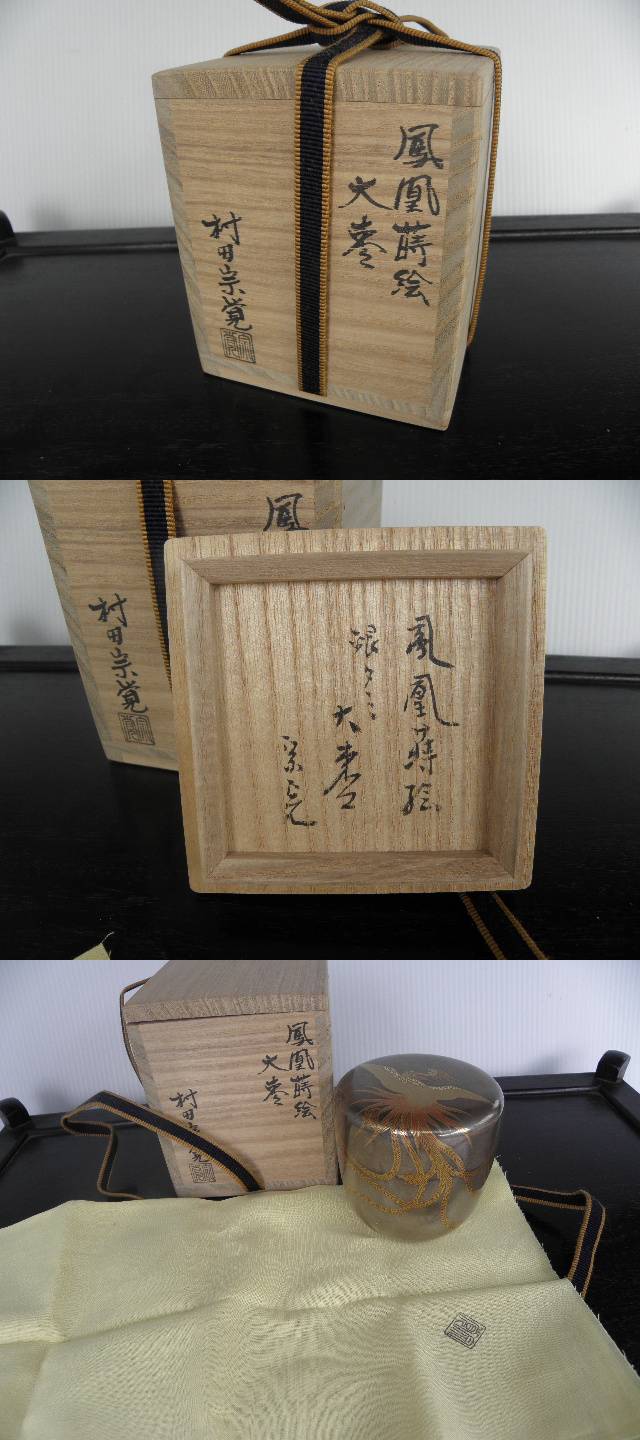 鳳凰蒔絵
大棗
村田宗覚
鳳
村田宗覚
鳳凰蒔絵
銀タミ
大棗
宗覚
鳳凰蒔絵
大棗
村田宗覚